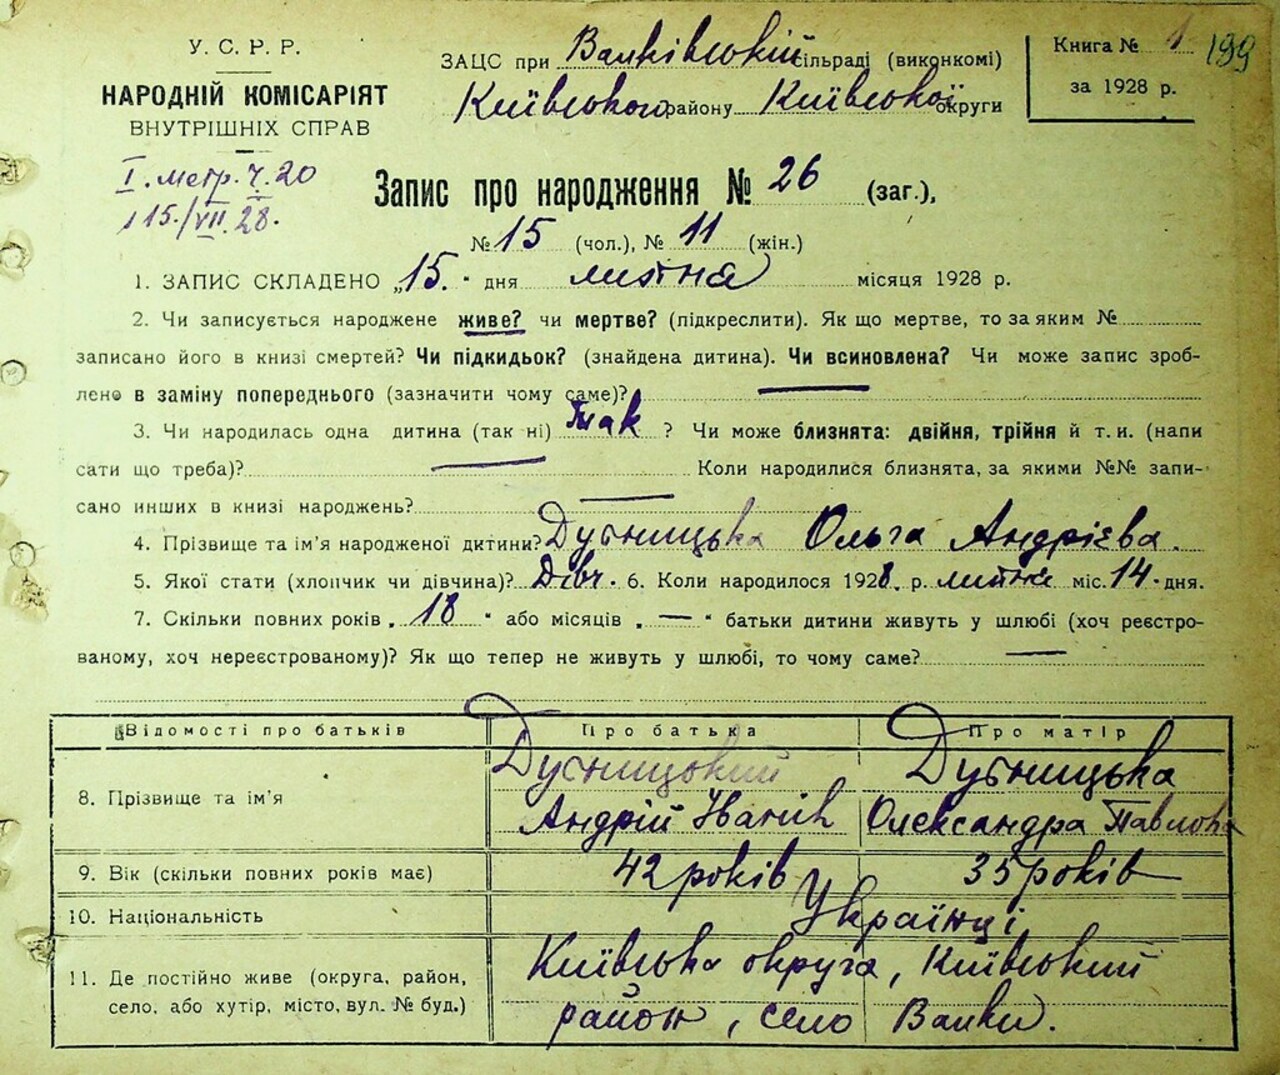 У. С. Р. Р.
НАРОДНІЙ КОМІСАРІЯТ
ВНУТРІШНІХ СПРАВ
І. метр. ч. 20
15/VII 28.
ЗАЦС при Валківській сільраді (виконкомі)
Київського району Київської округи
Книга № 1
за 1928 р.
199
Запис про народження № 26 (заг.),
№ 15 (чол.), № 11 (жін.)
1. ЗАПИС СКЛАДЕНО „15." дня лютня місяця 1928 р.
2. Чи записується народжене живе? чи мертве? (підкреслити). Як що мертве, то за яким №
записано його в книзі смертей? Чи підкидьок? (знайдена дитина). Чи всиновлена? Чи може запис зроб-
лено в заміну попереднього (зазначити чому саме)? —
3. Чи народилась одна дитина (так ні) Так ? Чи може близнята: двійня, трійня й т. и. (напи
сати що треба)? — Коли народилися близнята, за якими №№ запи-
сано инших в книзі народжень? —
4. Прізвище та ім'я народженої дитини? Дубницька Ольга Андрієва.
5. Якої стати (хлопчик чи дівчина)? Дівч. 6. Коли народилося 1928. р. лютня міс. 14. дня.
7. Скільки повних років „ 18 " або місяців „ — " батьки дитини живуть у шлюбі (хоч реєстро-
ваному, хоч нереєстрованому)? Як що тепер не живуть у шлюбі, то чому саме? —
Відомості про батьків Про батька Про матір
8. Прізвище та ім'я Дубницький Андрій Іванів Дубницька Олександра Павлова
9. Вік (скільки повних років має) 42 років 35 років
10. Національність Українці
11. Де постійно живе (округа, район, Київська округа, Київський
село, або хутір, місто, вул. № буд.) район, село Валки.